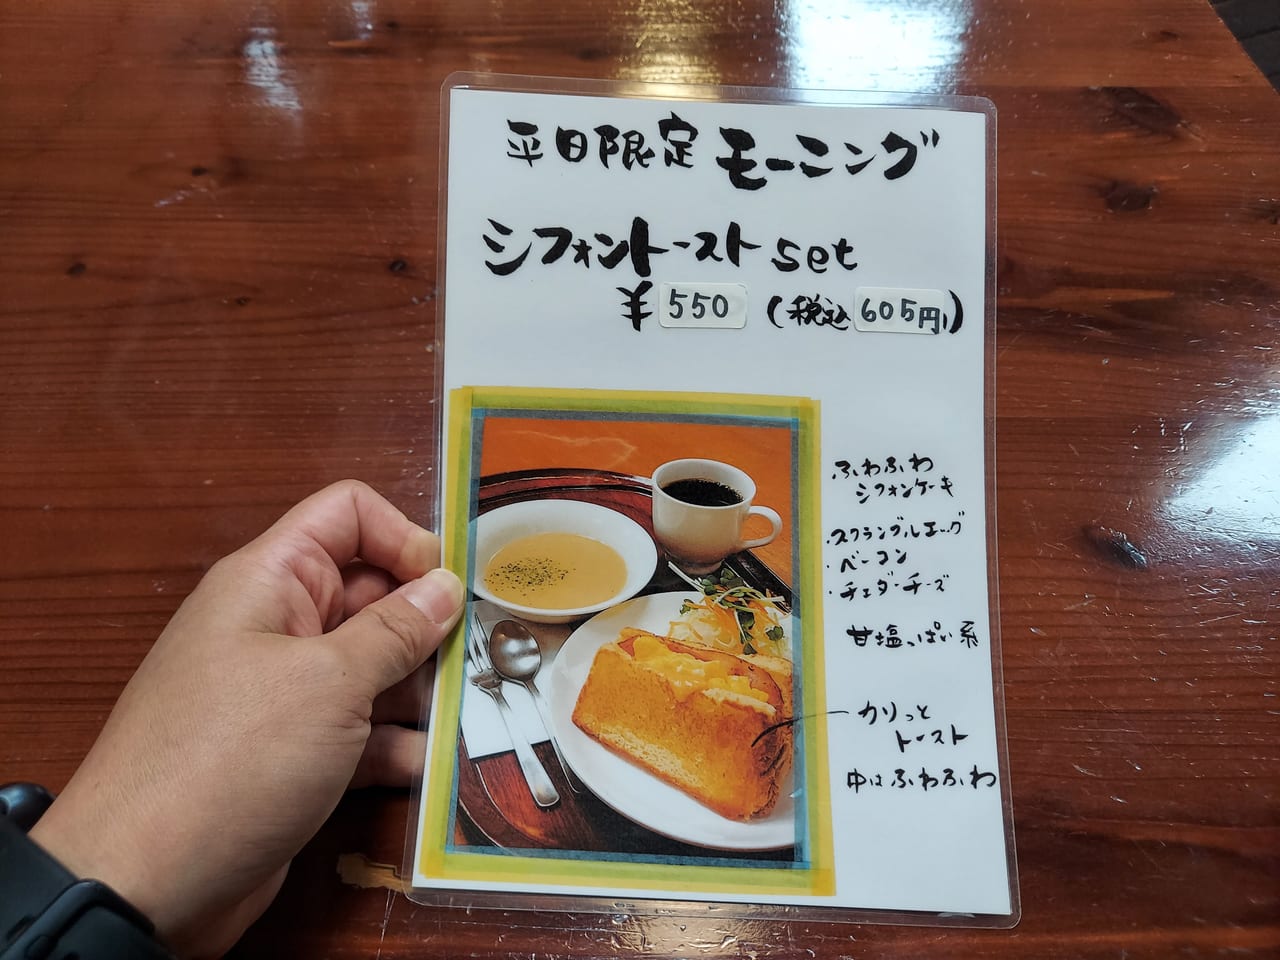 平日限定 モーニング
シフォントースト set
¥ 550 (税込 605円)
ふわふわ
シフォンケーキ
・スクランブルエッグ
・ベーコン
・チェダーチーズ
甘塩っぱい系
カリっと
トースト
中はふわふわ